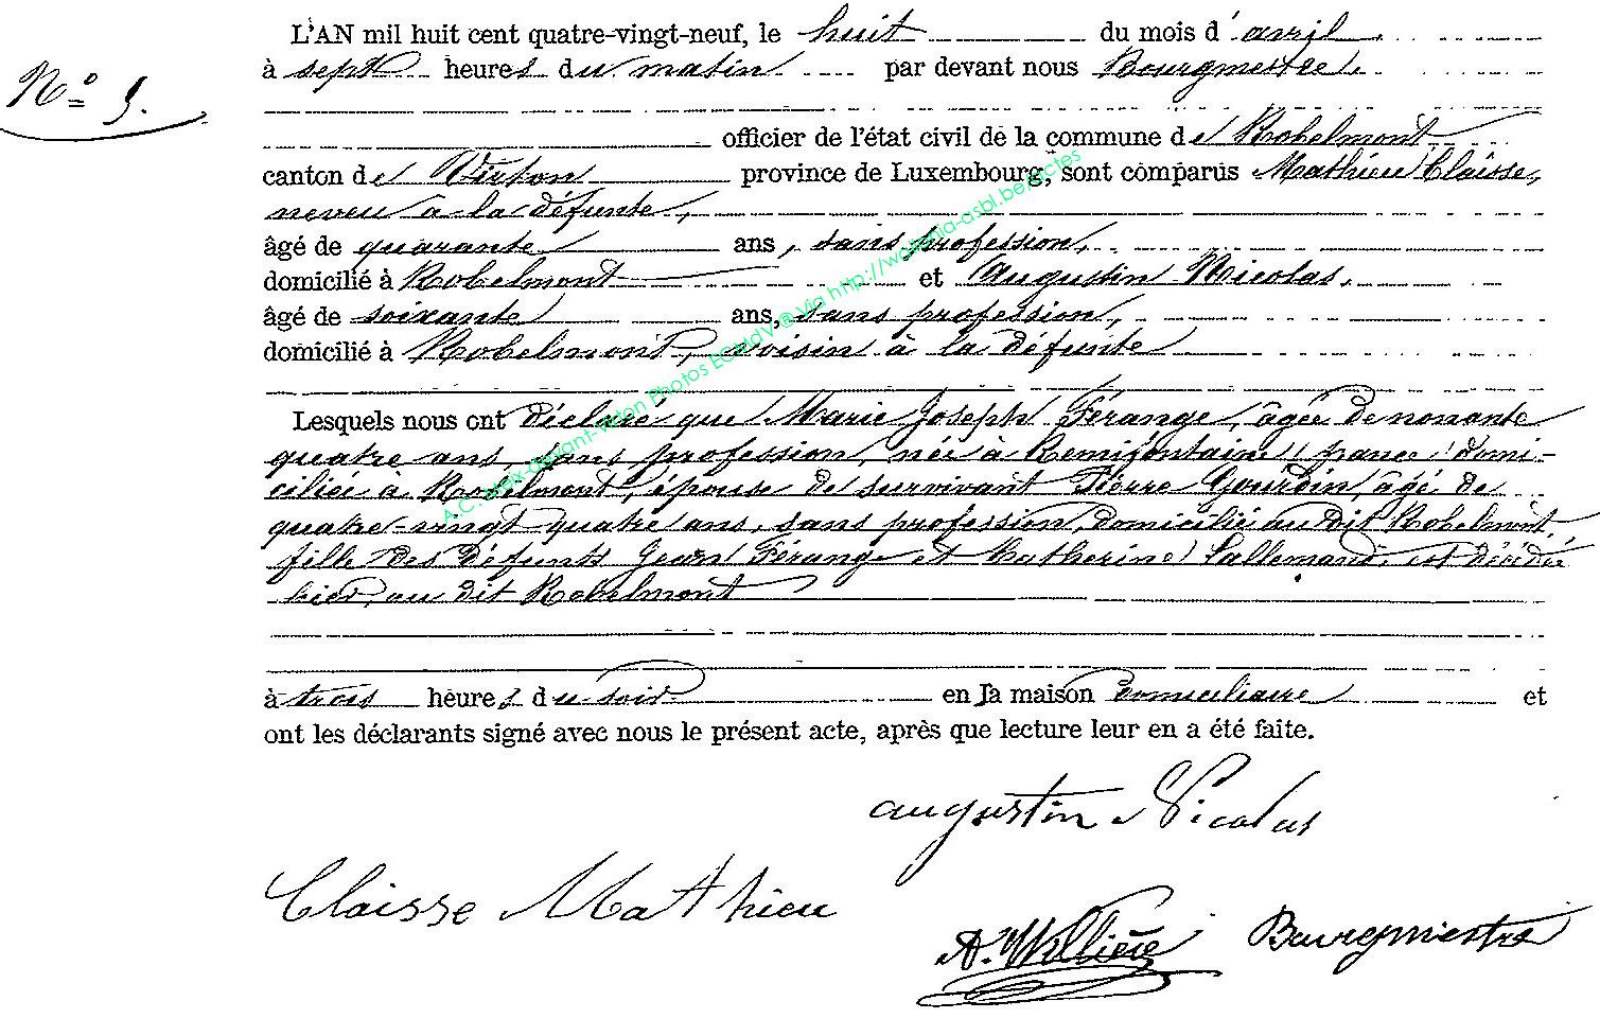 L'AN mil huit cent quatre-vingt-neuf, le huit du mois d'avril
N° 5. à sept heures du matin par devant nous Bourgmestre
officier de l'état civil de la commune de Robelmont
canton de Virton province de Luxembourg, sont comparus Mathieu Claisse,
neveu à la défunte,
âgé de quarante ans, sans profession,
domicilié à Robelmont et Augustin Nicolas,
âgé de soixante ans, sans profession,
domicilié à Robelmont, voisin à la défunte
Lesquels nous ont déclaré que Marie Joseph Férange, âgée de nonante
quatre ans, sans profession, née à Remifontaine (france) domi-
ciliée à Robelmont, épouse de survivant Pierre Gourdin, âgé de
quatre-vingt quatre ans, sans profession, domicilié au dit Robelmont,
fille des défunts Jean Férange et Catherine Lallemand, est décédée
hier, au dit Robelmont
à trois heures du soir en la maison domiciliaire et
ont les déclarants signé avec nous le présent acte, après que lecture leur en a été faite.
augustin Nicolas
Claisse Mathieu
A. Willière Bourgmestre
A.C. Meix-devant-Virton Photos ECMdV @ Via http://wallonia-asbl.be/actes